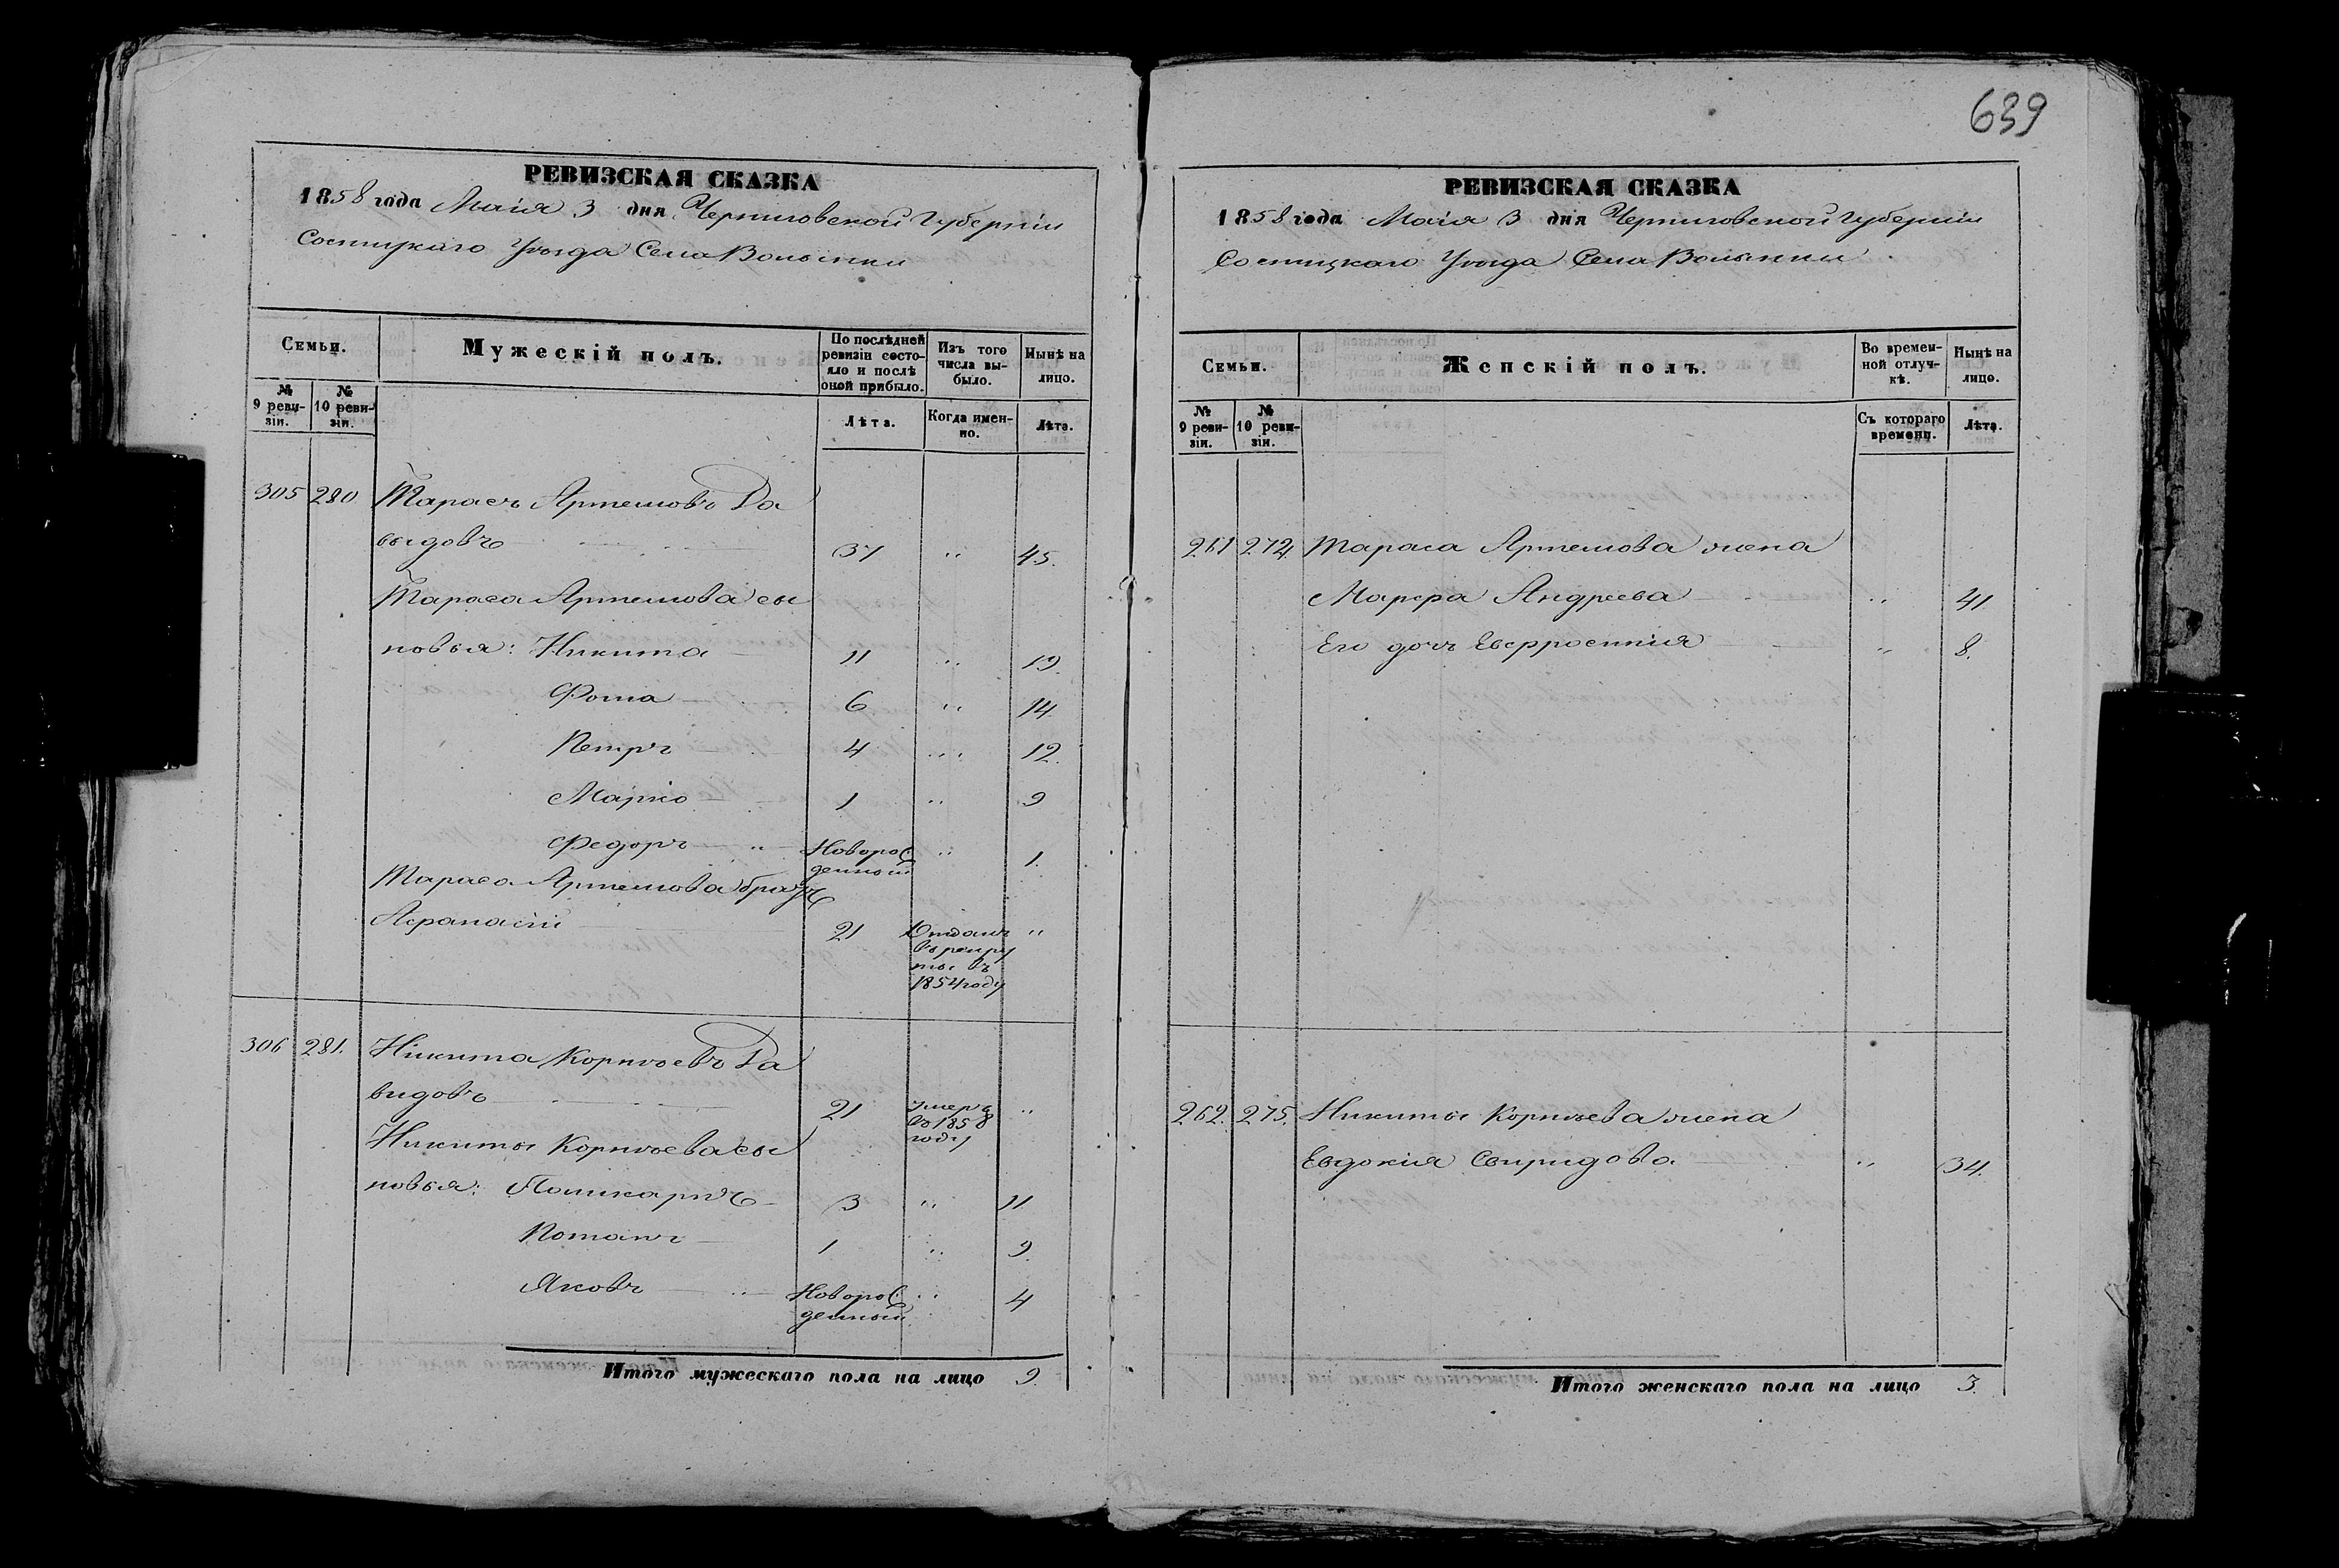 639
РЕВИЗСКАЯ СКАЗКА
1858 года Маія 3 дня Черниговской Губерніи
Сосницкаго Уѣзда Села Волынки
Семьи.
Мужескій полъ.
По послѣдней ревизіи состояло и послѣ оной прибыло.
Изъ того числа выбыло.
Нынѣ на лицо.
№ 9 ревизіи.
№ 10 ревизіи.
Лѣта.
Когда именно.
Лѣта.
305 280 Тарасъ Артемовъ Да
выдовъ 37 " 45.
Тараса Артемова сы
новья: Никита 11 " 19.
Фома 6 " 14.
Петръ 4 " 12.
Марко 1 " 9
Федоръ " Новорож
денный " 1.
Тараса Артемова братъ
Афанасій 21 Отданъ "
въ рекру
ты въ
1854 году
306 281. Никита Корнѣевъ Да
видовъ 21 Умеръ "
въ 1858
году
Никиты Корнѣева сы
новья: Поликарпъ 3 " 11
Потапъ 1 " 9.
Яковъ " Новорож
денный " 4
Итого мужескаго пола на лицо 9.
РЕВИЗСКАЯ СКАЗКА
1858 года Маія 3 дня Черниговской Губерніи
Сосницкаго Уѣзда Села Волынки
Семьи.
Женскій полъ.
Во временной отлучкѣ.
Нынѣ на лицо.
№ 9 ревизіи.
№ 10 ревизіи.
Съ котораго времени.
Лѣта.
261 274. Тараса Артемова жена
Марфа Андреева " 41.
Его дочь Евфросинія " 8.
262. 275. Никиты Корнѣева жена
Евдокія Свиридова " 34.
Итого женскаго пола на лицо 3.